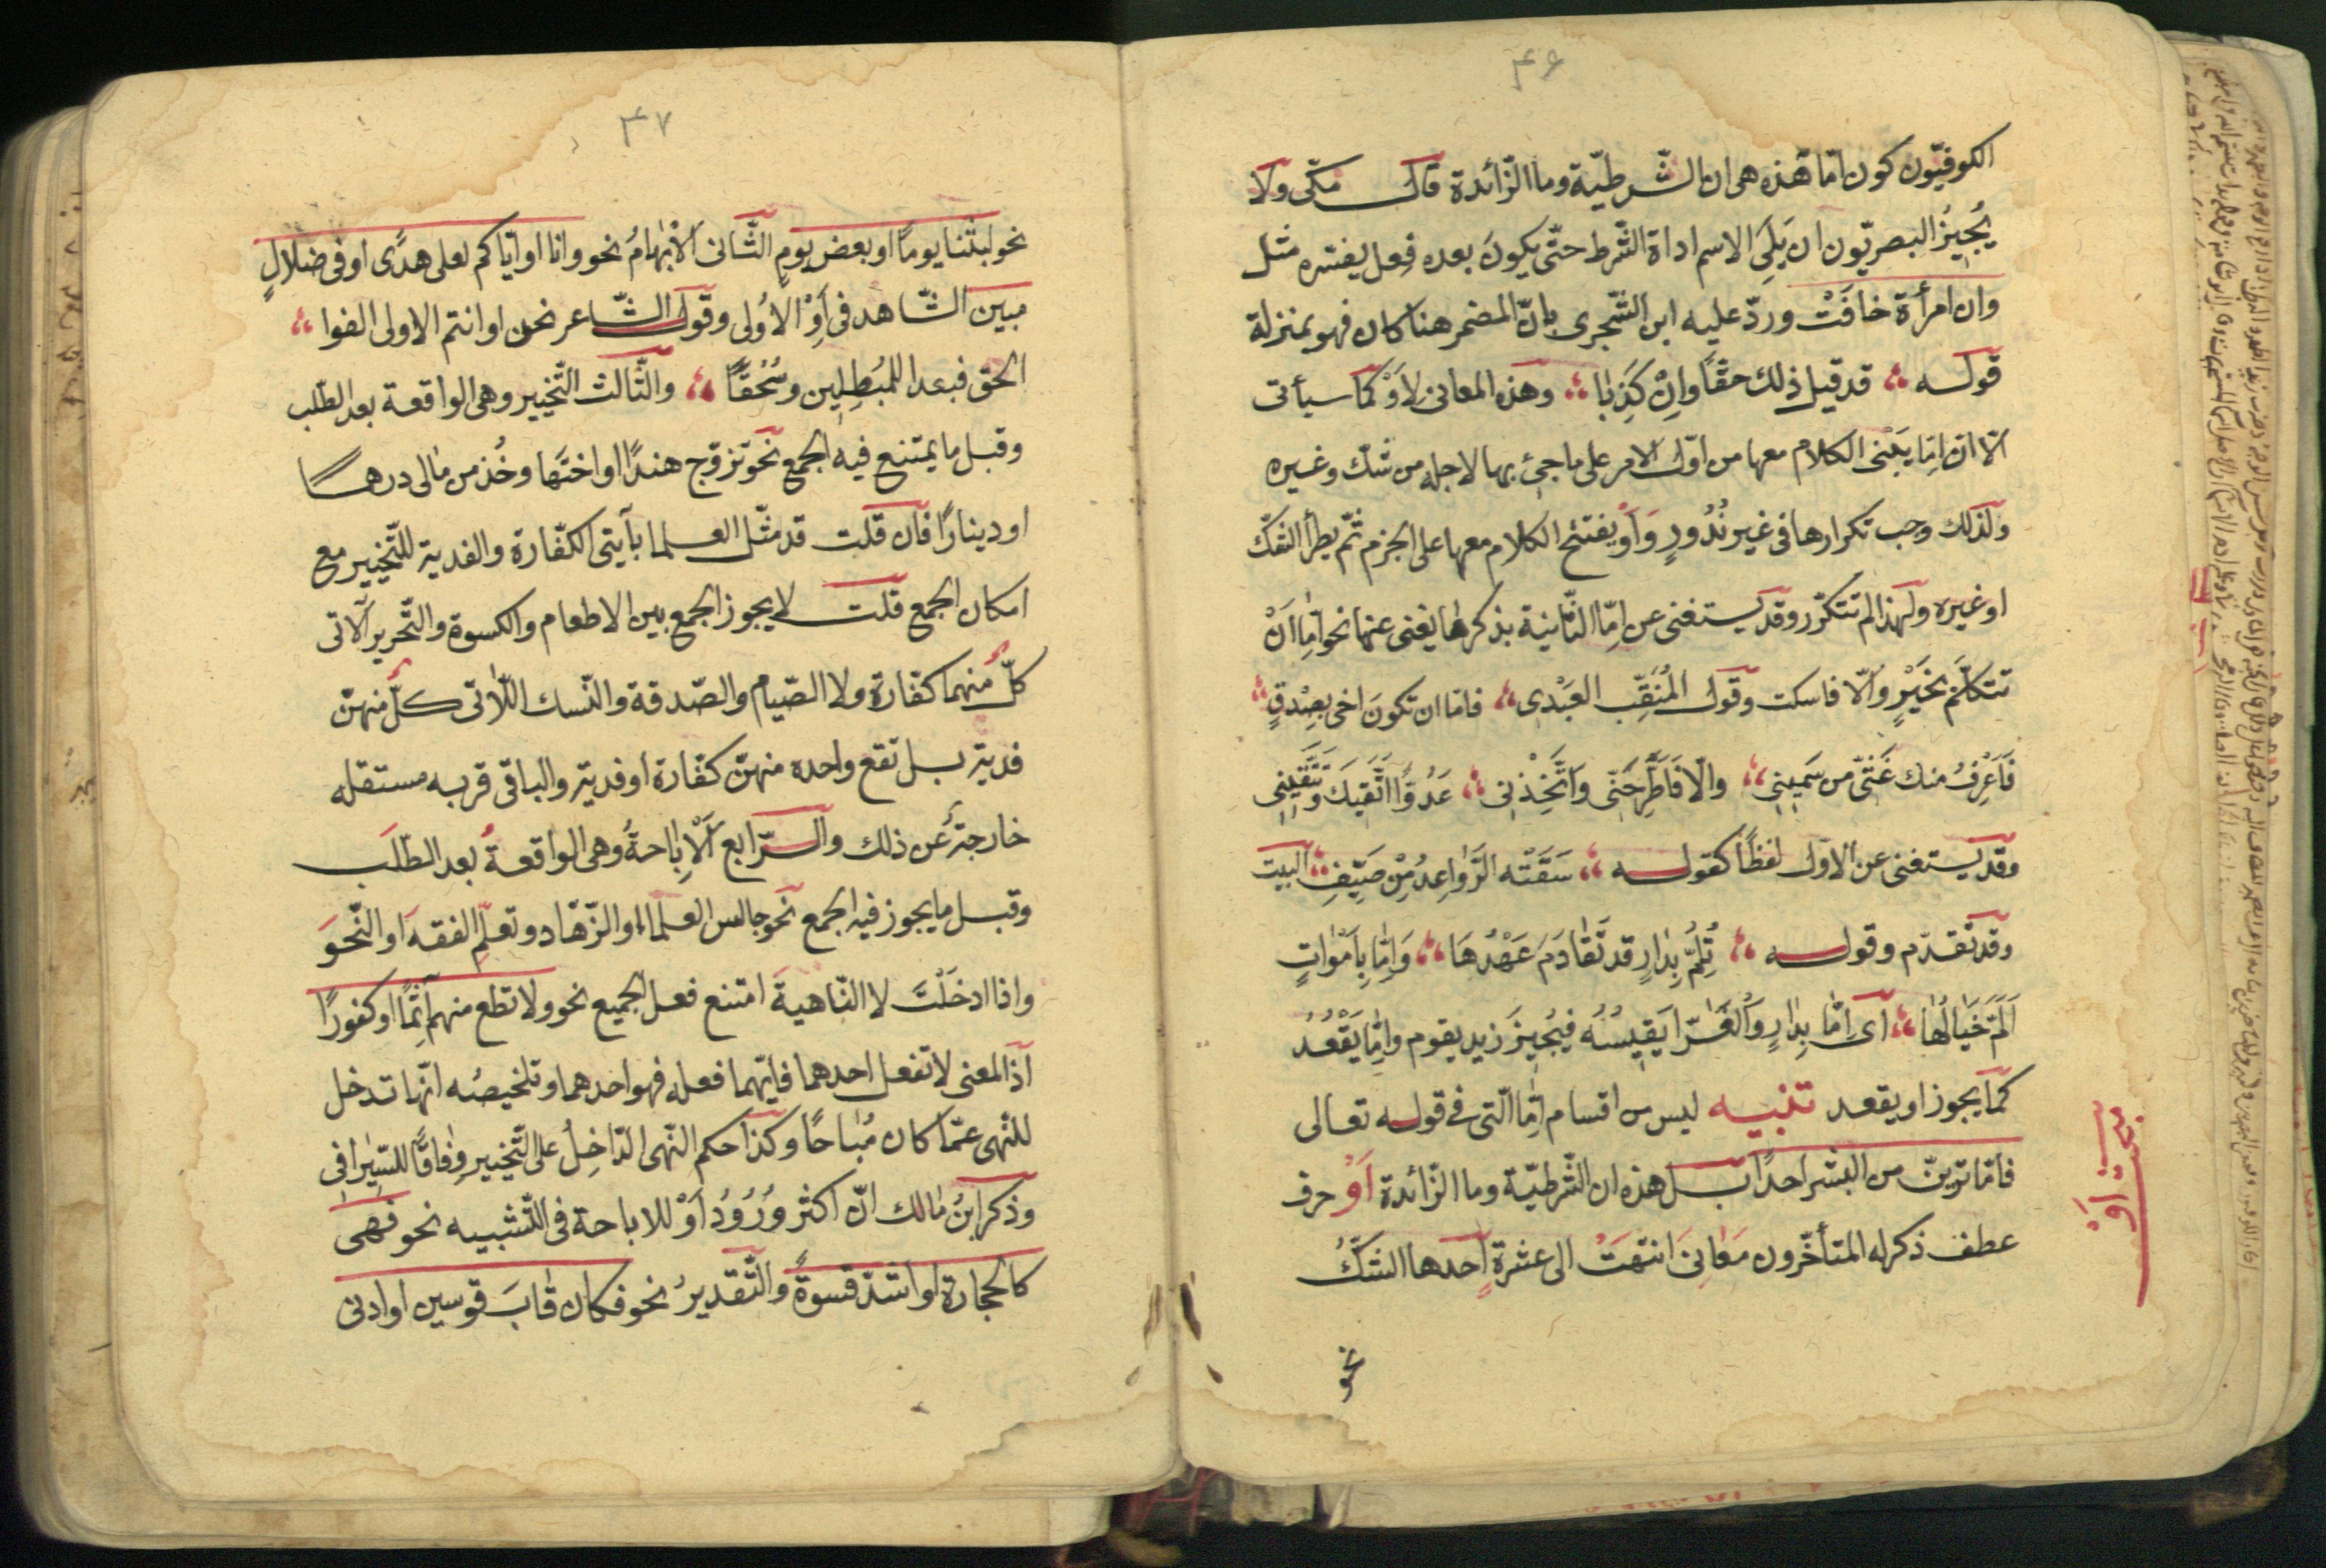 ۴۶
الكوفيّون كون امّا هذه هى ان الشّرطيّة وما الزّائدة قال مكّى ولا
يُجيزُ البصريّون ان يَلِىَ الاسم اداة الشّرط حتّى يكونَ بعده فِعل يفسّره مثل
وان امرأة خافَتْ وردّ عليه ابن الشّجرى بانّ المضمر هنا كان فهو بمنزلة
قوله ؛ قد قيل ذلك حقًّا وانْ كَذِبًا ؛ وهذه المعانى لِاَوْ كما سيأتى
الّا انّ اِمّا يَبْنى الكلام معها من اوّل الامر على ما جئ بها لاجله من شكّ وغيره
ولذلك وجب تكرارها فى غير نُدُورٍ وَاَوْ يفتتح الكلام معها على الجزم ثمّ يطرأ الشكّ
او غيره ولهذا لم تتكرّر وقد يستغنى عن اِمّا الثّانية بذكر ما يغنى عنها نحو اِمّا اَنْ
تتكلّمَ بخَيْرٍ والّا فاسكت وقول المُثَقِّب العَبْدى ؛ فامّا ان تكونَ اخى بصِدْقٍ ؛
فَاَعْرِفُ منك غَثّى من سَمينى ؛ والّا فَاطَّرِحْنى وَاتَّخِذْنى ؛ عَدُوًّا اَتَّقيكَ وَتَتَّقينى
وقد يستغنى عن الاوّل لفظًا كقوله ؛ سَقَتْه الرَّواعِدُ مِنْ صَيِّفٍ ؛ البيت
وقد تقدّم وقوله ؛ تُلِمُّ بِدارٍ قد تَقادَمَ عَهْدُهَا ؛ وَاِمّا بِاَمْواتٍ
اَلَمَّ خَيالُها ؛ اى اِمّا بِدارٍ وَالْفَرّا يَقيسُهُ فيُجيزَ زيد يقوم واِمّا يَقْعُدُ
كما يجوز او يقعد تنبيه ليس من اقسام اِمّا الّتى فى قوله تعالى
فامّا ترينّ من البشر احدًا بل هذه ان الشّرطيّة وما الزّائدة اَوْ حرف
عطف ذكر له المتأخّرون مَعانىَ انتهَتْ الى عشرةٍ احدها الشّكُّ
نحو
بحث اَوْ
۴۷
نحو لبثنا يومًا او بعض يومٍ الثّانى الْاِبْهامُ نحو وانا او ايّاكم لعلى هدًى او فى ضلالٍ
مبين الشّاهد فى اَوْ الاُولى وقول الشّاعر نحن او انتم الاولى الفوا ؛
الحقّ فبعدا للمُبطِلين وسُحْقًا ؛ والثّالث التّخيير وهى الواقعة بعد الطّلب
وقبل ما يمتنع فيه الجمع نحو تزوّج هندًا او اختَها وخُذ من مالى درهمًا
او دينارًا فان قلت قد مثّل العلما بآيتى الكفّارة والفدية للتّخيير مع
امكان الجمع قلت لا يجوز الجمع بين الاطعام والكسوة والتّحرير الّاتى
كلّ منهما كفّارة ولا الصّيام والصّدقة والنّسك اللّاتى كلّ منهنّ
فدية بل تقع واحده منهنّ كفّارة او فدية والباقى قربه مستقله
خارجةٌ عن ذلك والرّابع اَلْاِباحةُ وهى الواقعةُ بعد الطّلَب
وقبل ما يجوز فيه الجمع نحو جالس العلماء او الزّهّاد وتعلّمِ الفقهَ او النّحوَ
واذا ادخَلْتَ لا النّاهيةَ امتنع فعل الجميع نحو ولا تطع منهم آثمًا او كفورًا
اذ المعنى لا تفعل احدهما فايّهما فعله فهو احدهما وتلخيصُه انّها تدخل
للنّهى عمّا كان مُباحًا وكذا حكم النّهى الدّاخِلُ على التّخيير وِفاقًا للسّيرافى
وذكر ابنُ مالك انّ اكثر وُرُوُد اَوْ للاباحة فى التّشبيه نحو فهى
كالحجارة او اشدّ قسوةً والتّقديرُ نحو فكان قابَ قوسين او ادنى